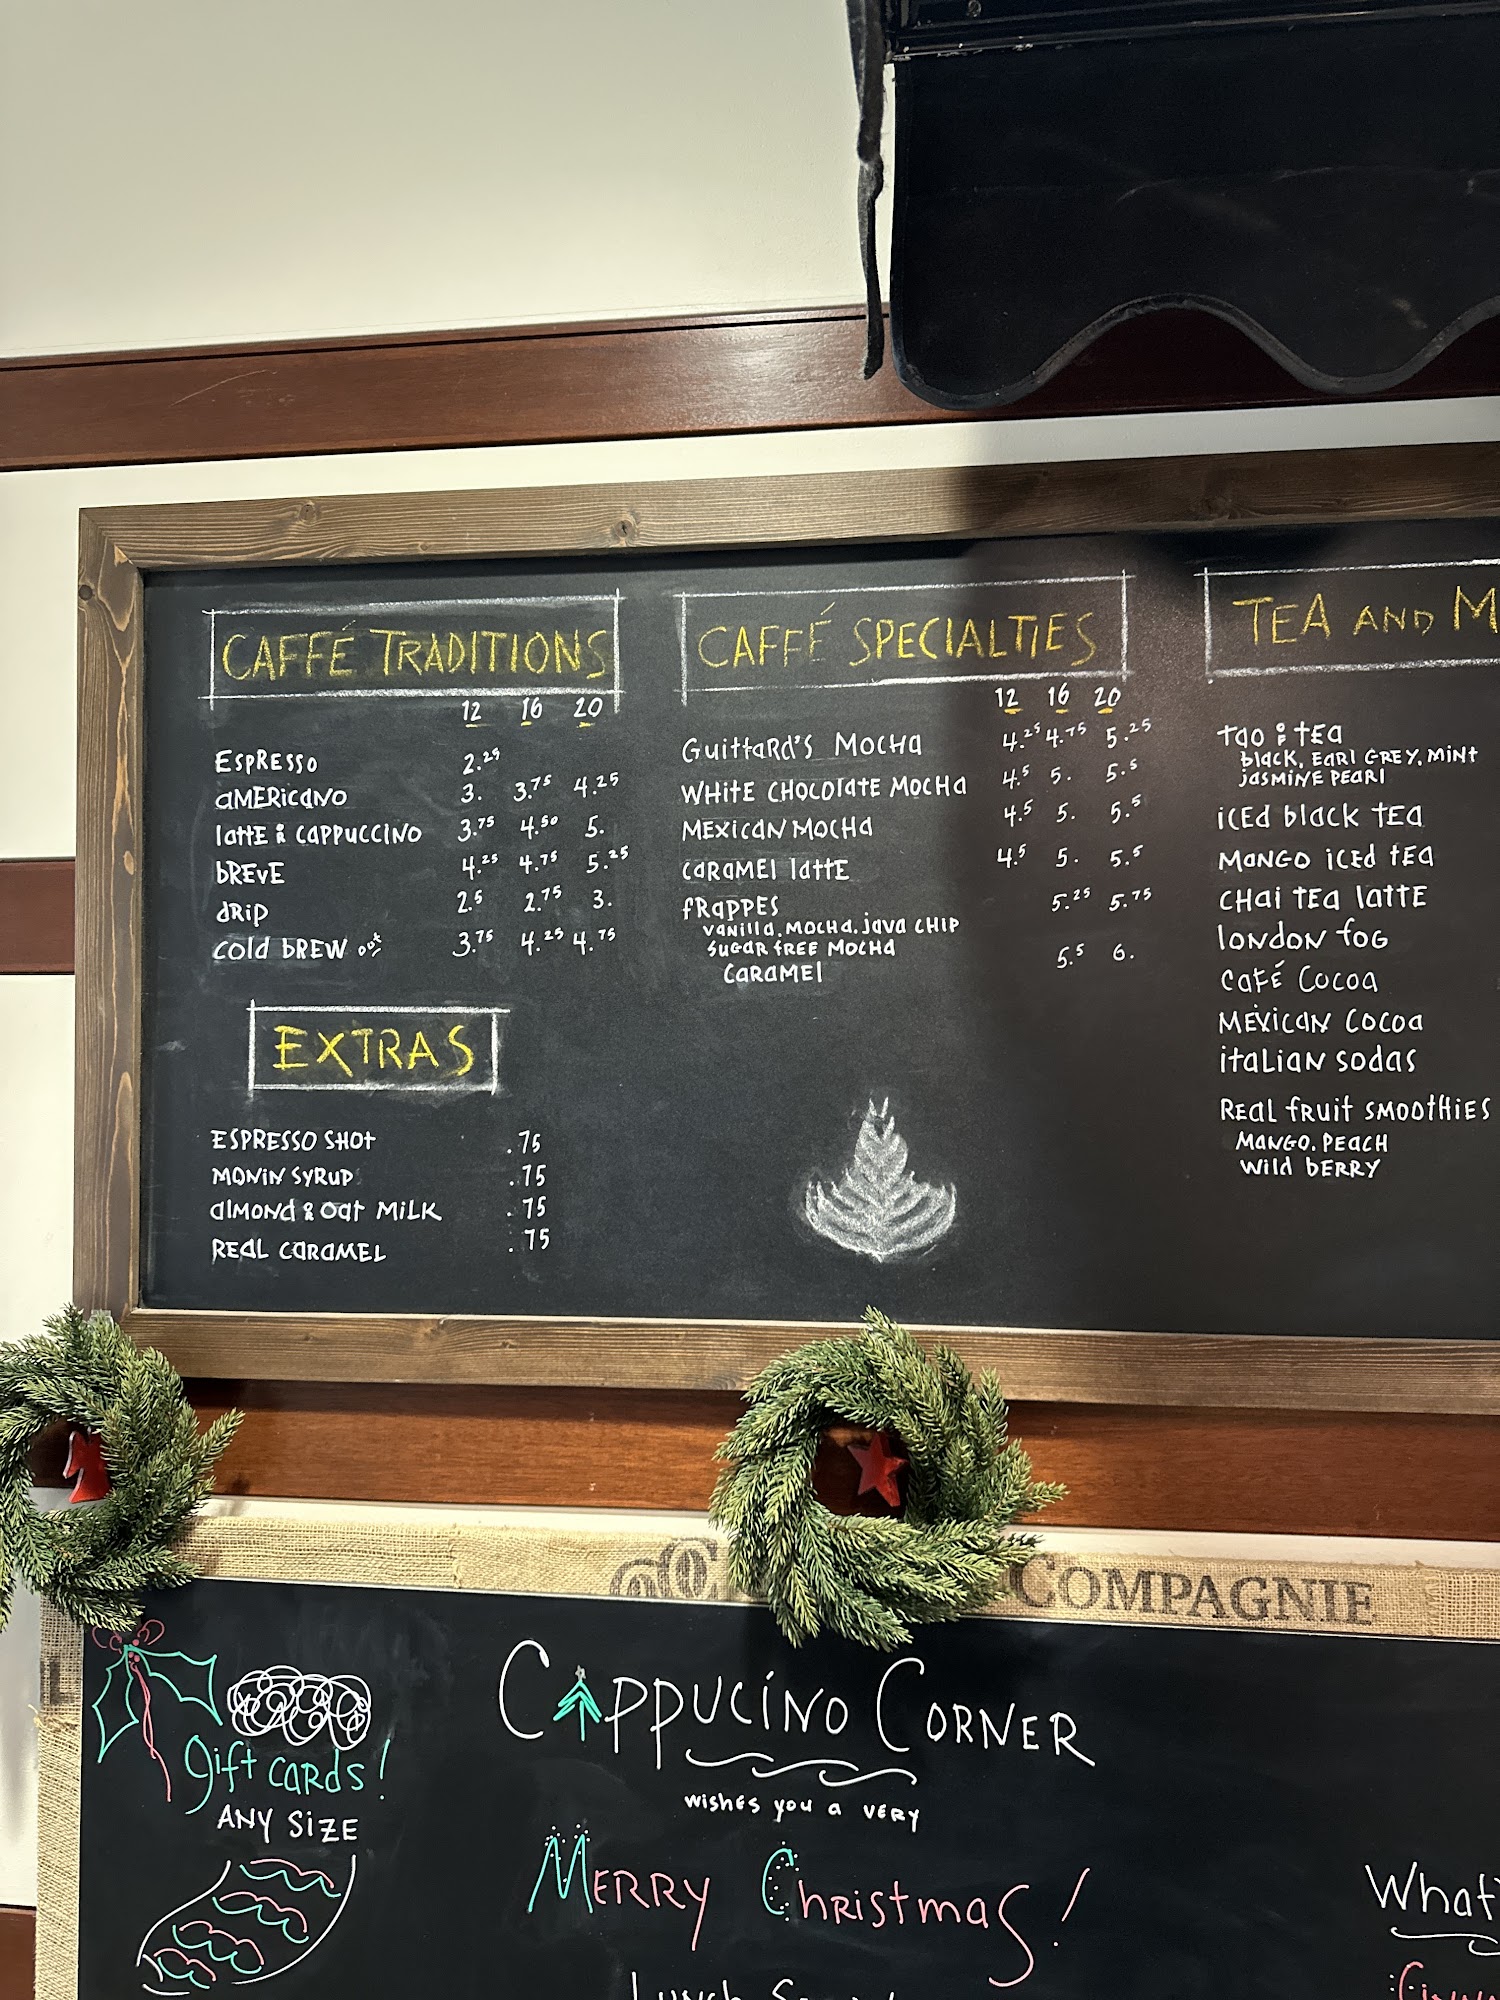 CAFFÉ TRADITIONS
12 16 20
ESPRESSO 2.25
AMERICANO 3. 3.75 4.25
LATTE & CAPPUCCINO 3.75 4.50 5.
BREVE 4.25 4.75 5.25
DRIP 2.5 2.75 3.
COLD BREW 3.75 4.25 4.75
EXTRAS
ESPRESSO SHOT .75
MONIN SYRUP .75
ALMOND & OAT MILK .75
REAL CARAMEL .75
CAFFÉ SPECIALTIES
12 16 20
GUITTARD'S MOCHA 4.25 4.75 5.25
WHITE CHOCOLATE MOCHA 4.5 5. 5.5
MEXICAN MOCHA 4.5 5. 5.5
CARAMEL LATTE 4.5 5. 5.5
FRAPPES 5.25 5.75
VANILLA, MOCHA, JAVA CHIP
SUGAR FREE MOCHA
CARAMEL 5.5 6.
TEA AND M
TAO OF TEA
BLACK, EARL GREY, MINT
JASMINE PEARL
ICED BLACK TEA
MANGO ICED TEA
CHAI TEA LATTE
LONDON FOG
CAFÉ COCOA
MEXICAN COCOA
ITALIAN SODAS
REAL FRUIT SMOOTHIES
MANGO, PEACH
WILD BERRY
COMPAGNIE
Gift cards!
ANY SIZE
CAPPUCINO CORNER
wishes you a VERY
MERRY Christmas!
What'